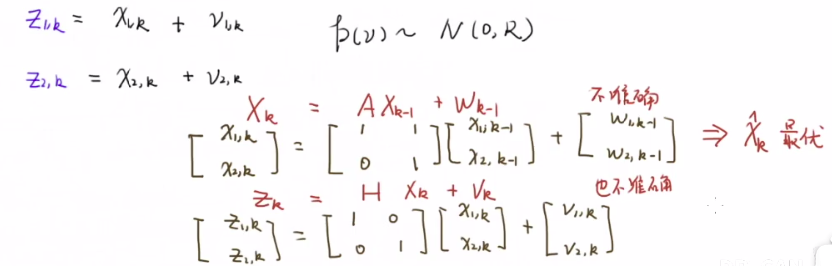 z₁,k = x₁,k + v₁,k p(v) ~ N(0,R)
z₂,k = x₂,k + v₂,k
不准确
X_k = A X_{k-1} + W_{k-1}
[x₁,k; x₂,k] = [1 1; 0 1][x₁,k-1; x₂,k-1] + [w₁,k-1; w₂,k-1] ⇒ X̂_k 最优
Z_k = H X_k + V_k 也不准确
[z₁,k; z₂,k] = [1 0; 0 1][x₁,k; x₂,k] + [v₁,k; v₂,k]